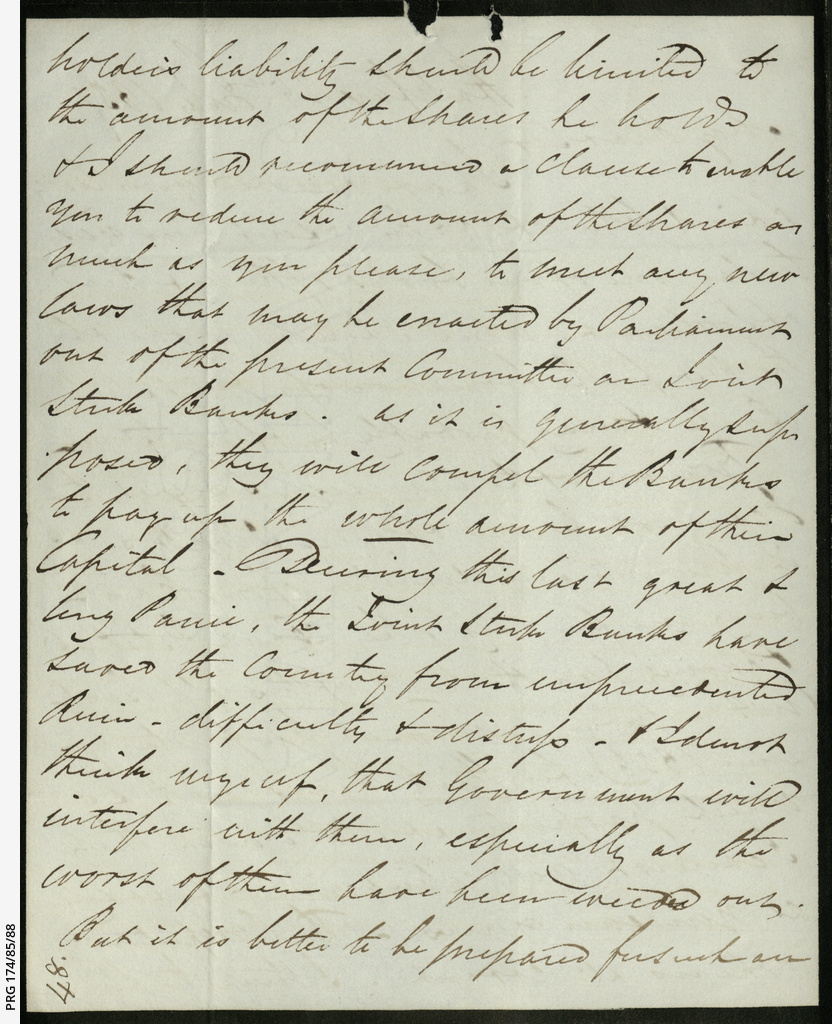 holders liability should be limited to
the amount of the Shares he holds
& I should recommend a Clause to enable
you to reduce the amount of the Shares as
much as you please, to meet any new
laws that may be enacted by Parliament
out of the present Committee on Joint
Stock Banks. as it is generally sup
posed, they will compel the Banks
to pay up the whole amount of their
Capital - During this last great &
long Panic, the Joint Stock Banks have
saved the Country from unprecedented
Ruin - difficulty & distress - & I do not
think myself, that Government will
interfere with them, especially as the
worst of them have been weeded out.
But it is better to be prepared for such an
48.
PRG 174/85/88